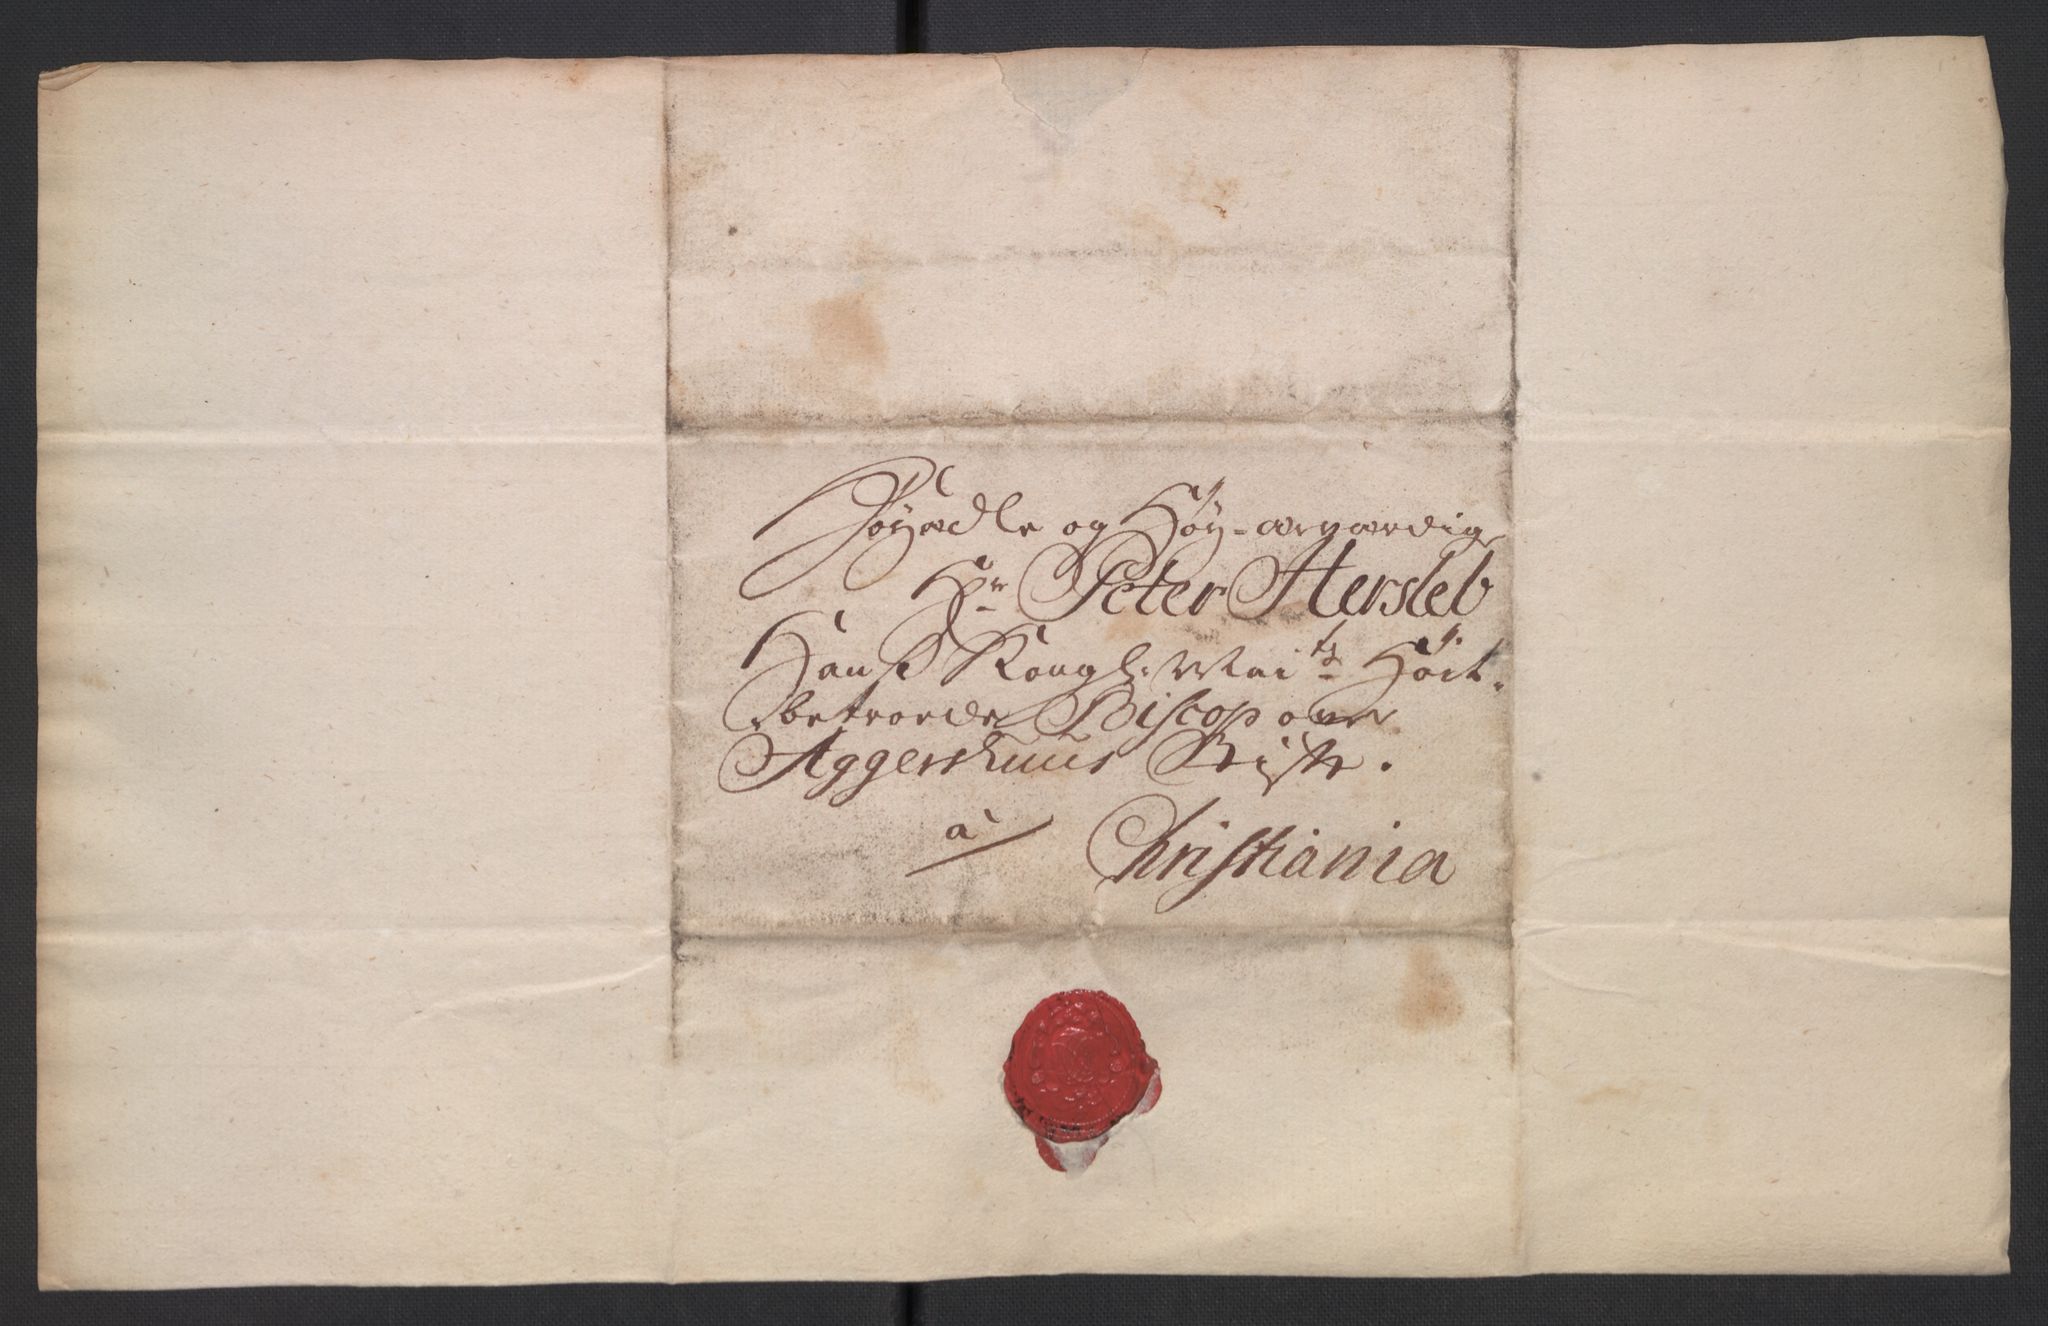 Høyædle og Høy-ærværdige
Hr Peter Hersleb
Hans Kongl: Maits Høit-
betroede Biscop over
Aggershuus Stift.
a
Christiania